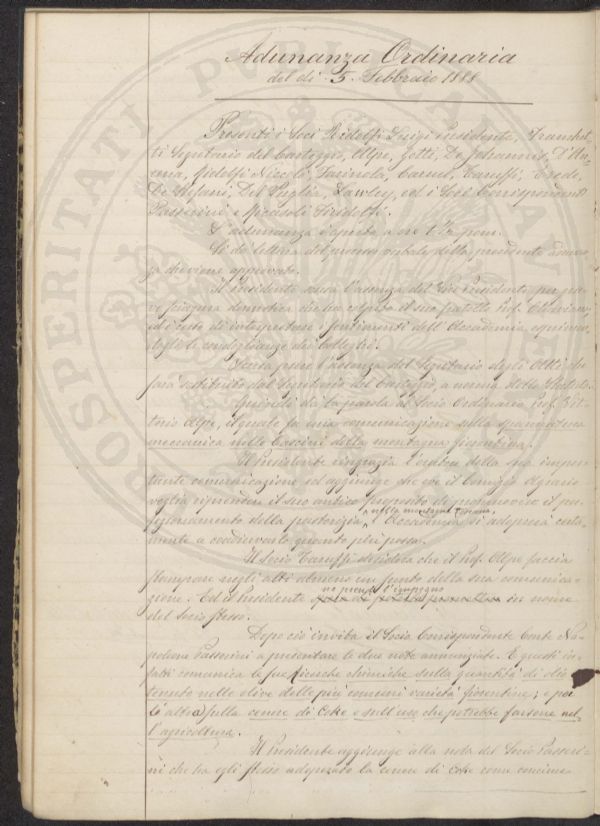 Adunanza Ordinaria
del dì 5. Febbraio 1888
Presenti i Soci Ridolfi Luigi Presidente, Franchet-
ti Segretario del Carteggio, Alpe, Gotti, De Johannis, D'An-
cona, Ridolfi Niccolò, Farinola, Caruel, Taruffi,
De Stefani, Del Puglia, Lawley, ed i Soci Corrispondenti
Passerini e Ricasoli Firidolfi.
L'adunanza è aperta a ore 1 ½ pom.
Si dà lettura del processo verbale della precedente adunan-
za che viene approvato.
Il Presidente scusa l'assenza del Vice Presidente per gra-
ve sciagura domestica che ha colpito il suo fratello Prof.
ed è certo di interpretare i sentimenti dell'Accademia esprimen-
dogli le condoglianze dei Colleghi.
Scusa pure l'assenza del Segretario degli Atti che
sarà sostituito dal Segretario del Carteggio, a norma dello Statuto.
Quindi dà la parola al Socio Ordinario Prof. Vit-
torio Alpe, il quale fa una comunicazione sulla spannatura
meccanica nelle Cascine della montagna
Il Presidente ringrazia l'oratore della sua impor-
tante comunicazione ed aggiunge che ove il Comizio Agrario
voglia riprendere il suo antico proposito di promuovere il per-
nella montagna toscana,
fezionamento della pastorizia, l'Accademia si adoprerà certa-
mente a coadiuvarlo quanto più possa.
Il Socio Taruffi desidera che il Prof. Alpe faccia
stampare negli atti almeno un sunto della sua comunica-
ne prende l'impegno
zione. Ed il Presidente in nome
del Socio stesso.
Dopo ciò invita il Socio Corrispondente Conte Na-
poleone Passerini a presentare le due note annunziate. E questi in-
fatti comunica le sue ricerche chimiche sulla quantità di olio con-
tenuto nelle olive delle più comuni varietà fiorentine; e poi
l'altra sulla cenere di Coke e sull'uso che potrebbe farsene nel-
l'agricoltura.
Il Presidente aggiunge alla nota del Socio Passeri-
ni che ha egli stesso adoperato la cenere di Coke come concime